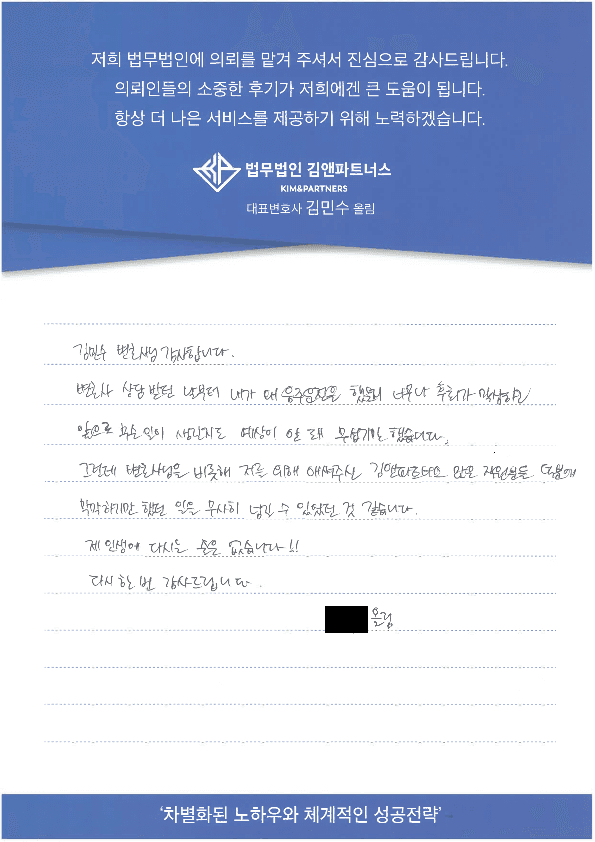 저희 법무법인에 의뢰를 맡겨 주셔서 진심으로 감사드립니다.
의뢰인들의 소중한 후기가 저희에겐 큰 도움이 됩니다.
항상 더 나은 서비스를 제공하기 위해 노력하겠습니다.
법무법인 김앤파트너스
KIM&PARTNERS
대표변호사 김민수 올림
김민수 변호사님 감사합니다.
변호사 상담 받던 날부터 내가 왜 음주운전을 했을까 너무나 후회가 막심하고
앞으로 무슨 일이 생길지도 예상이 안 돼 무섭기만 했습니다.
그런데 변호사님을 비롯해 저를 위해 애써주신 김앤파트너스 모든 직원분들 덕분에
막막하기만 했던 일을 무사히 넘길 수 있었던 것 같습니다.
제 인생에 다시는 음주운전은 없습니다!!
다시 한 번 감사드립니다.
올림
'차별화된 노하우와 체계적인 성공전략'